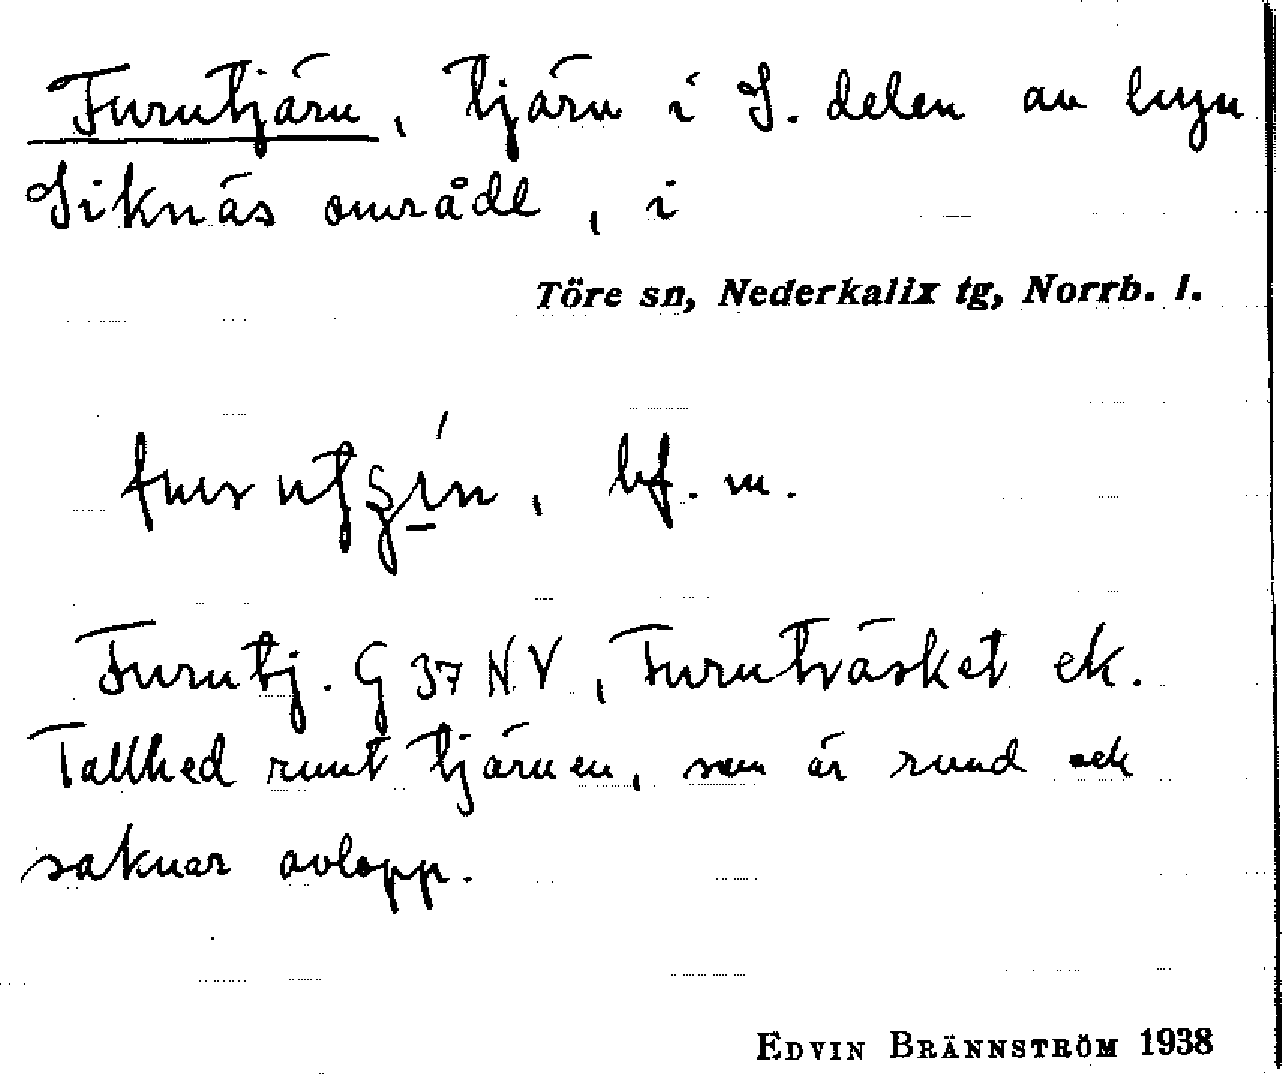 Furutjärn, tjärn i S. delen av byn
Siknäs område, i
Töre sn, Nederkalix tg, Norrb. l.
bf. m.
Furutj. G 37 NV, Furuträsket ek.
Tallhed runt tjärnen, som är rund och
saknar avlopp.
EDVIN BRÄNNSTRÖM 1938